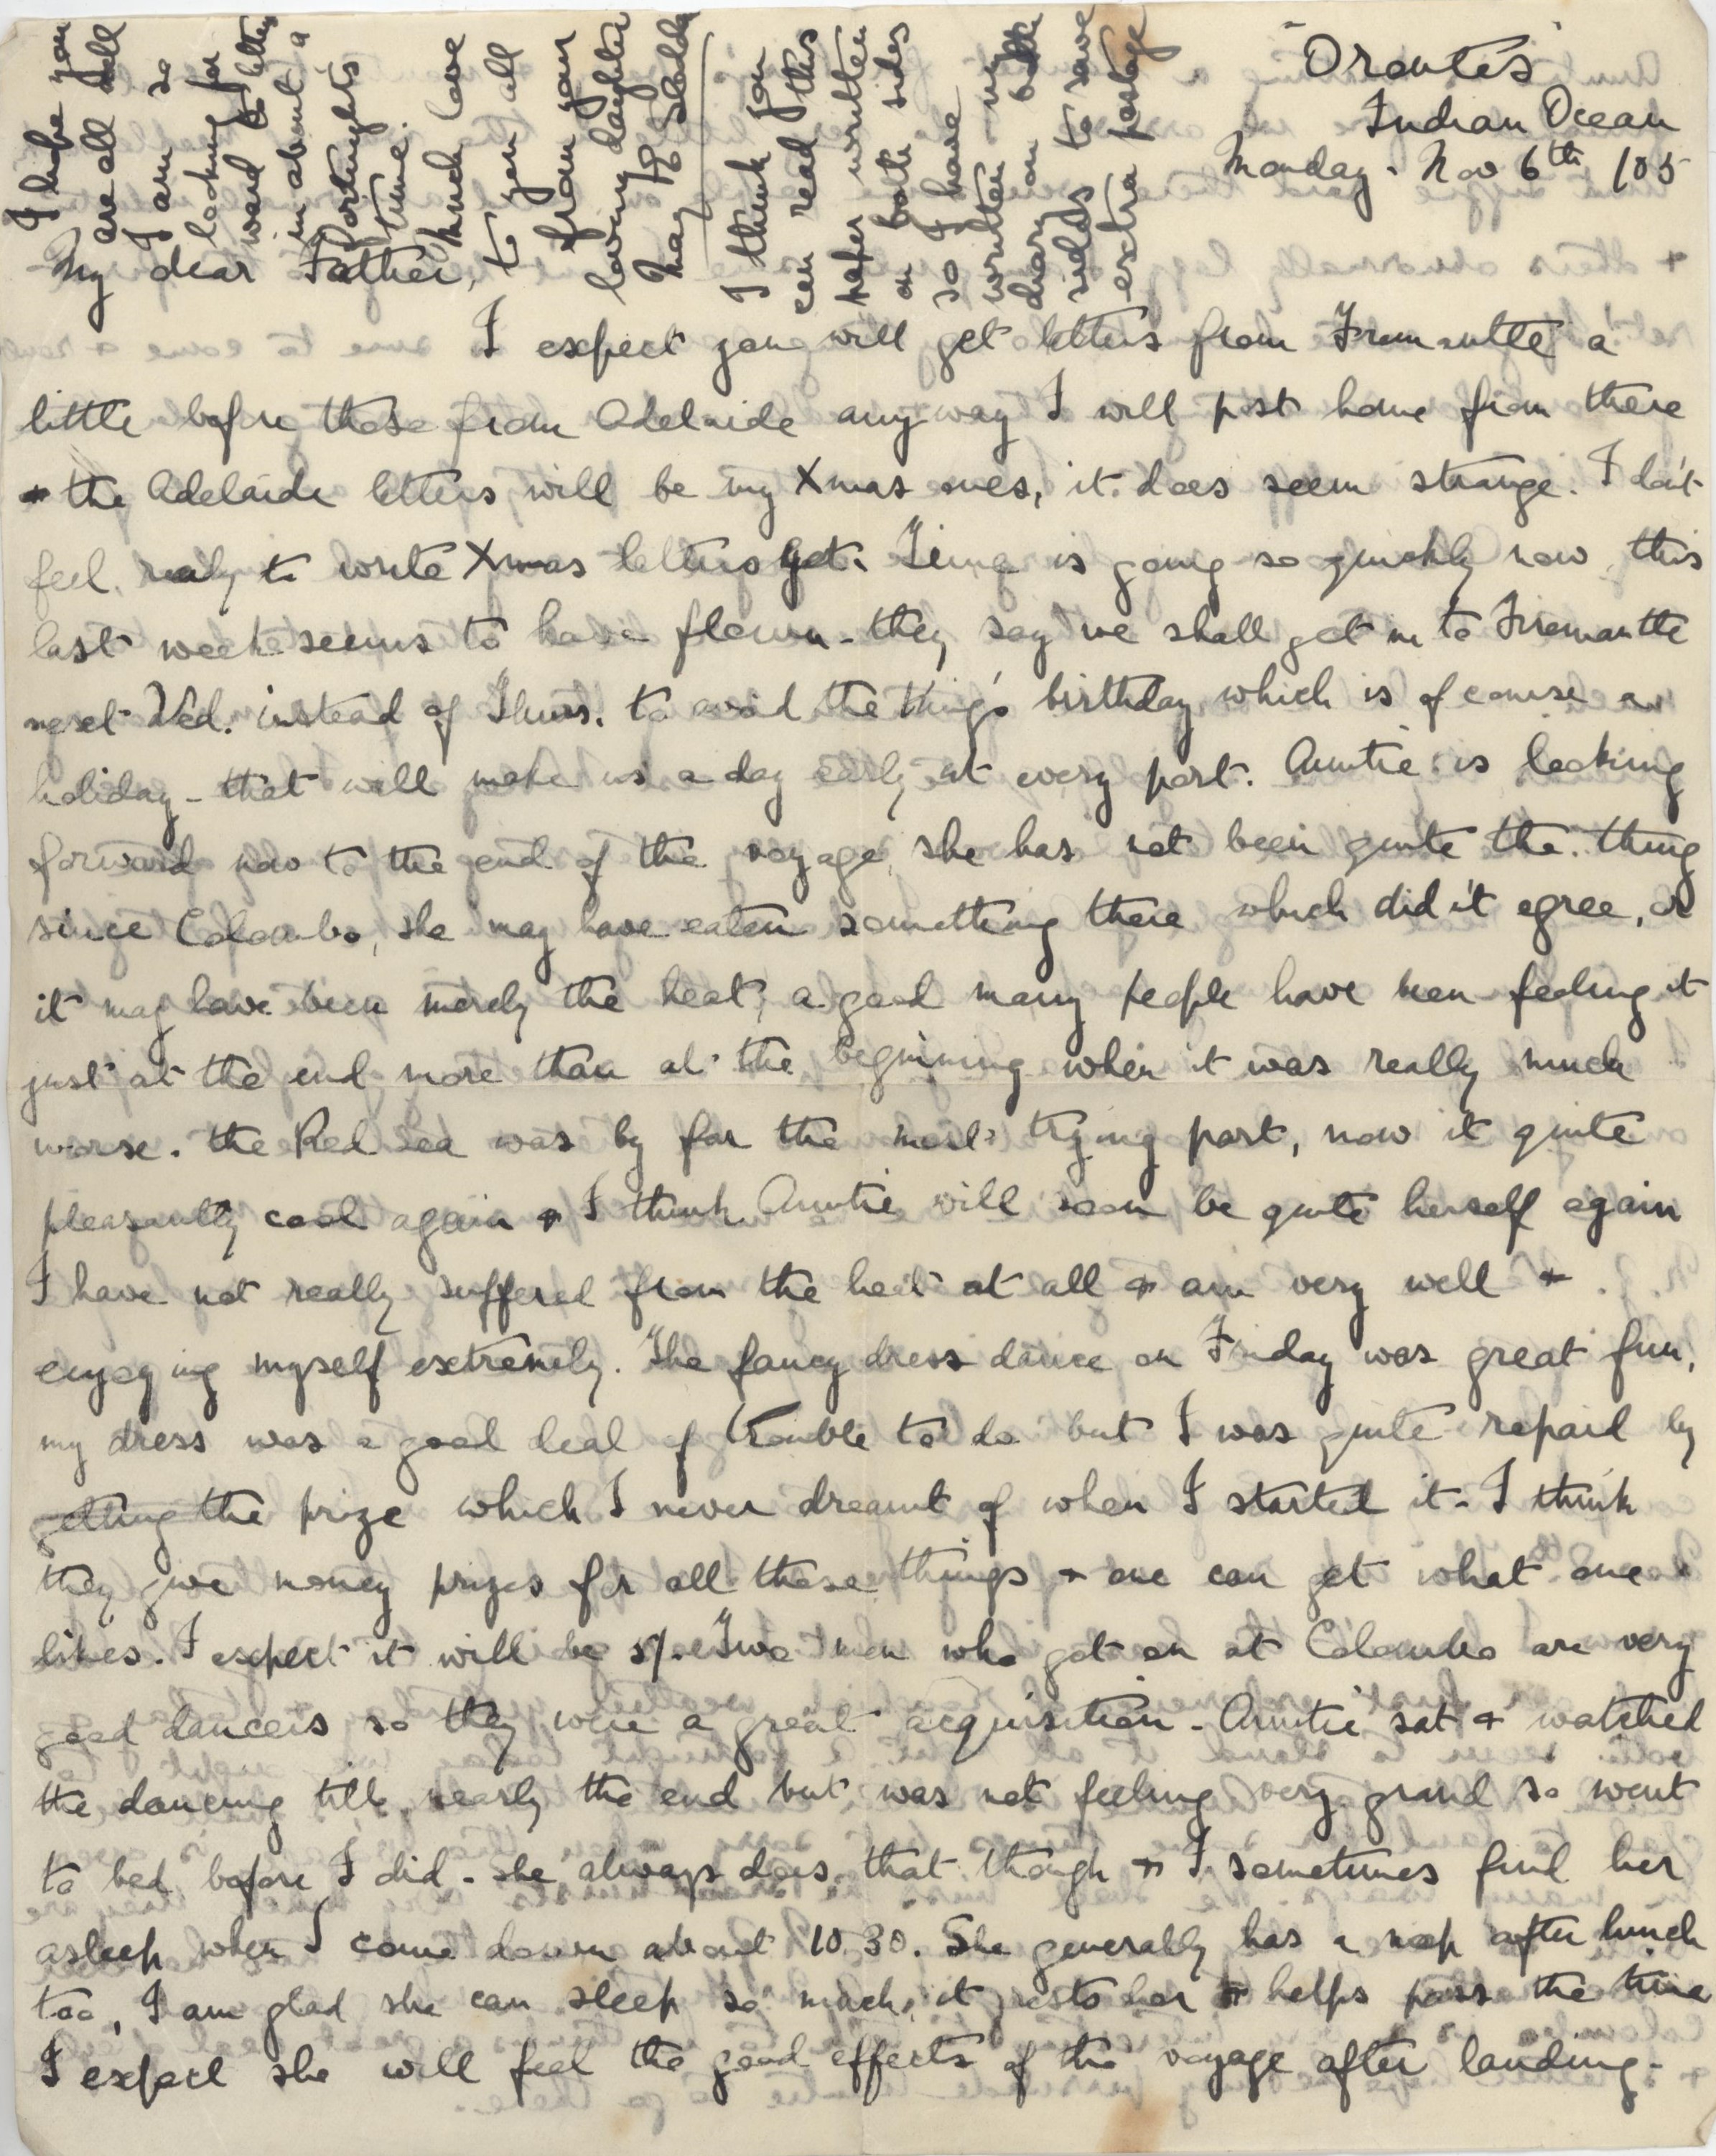 "Orontes"
Indian Ocean
Monday. Nov 6th /05
My dear Father,
I expect you will get letters from Fremantle a
little before those from Adelaide anyway I will post home from there
+ the Adelaide letters will be my Xmas ones, it does seem strange. I don't
feel ready to write Xmas letters yet. Time is going so quickly now this
last week seems to have flown - they say we shall get in to Fremantle
next Wed. instead of Thurs. to avoid the King's birthday which is of course a
holiday - that will make us a day early at every port. Auntie is looking
forward now to the end of the voyage, she has not been quite the thing
since Colombo, she may have eaten something there which didn't agree, or
it may have been merely the heat, a good many people have been feeling it
just at the end more than at the beginning when it was really much
worse. the Red Sea was by far the most trying part, now it quite
pleasantly cool again + I think Auntie will soon be quite herself again
I have not really suffered from the heat at all + am very well +
enjoying myself extremely. The fancy dress dance on Friday was great fun,
my dress was a good deal of trouble to do but I was quite repaid by
getting the prize which I never dreamt of when I started it - I think
they give money prizes for all these things + one can get what one
likes. I expect it will be 5/. Two men who got on at Colombo are very
good dancers so they were a great acquisition - Auntie sat + watched
the dancing till nearly the end but was not feeling very grand so went
to bed before I did - she always does that though + I sometimes find her
asleep when I come down about 10.30. She generally has a nap after lunch
too, I am glad she can sleep so much, it rests her + helps pass the time
I expect she will feel the good effects of the voyage after landing -
I hope you
are all well
I am so
looking for
ward to letters
in about a
fortnight's
time.
Much love
to you all
from your
loving daughter
May
I think you
can read this
paper written
on both sides
so I have
written my
diary on both
sides to save
extra postage